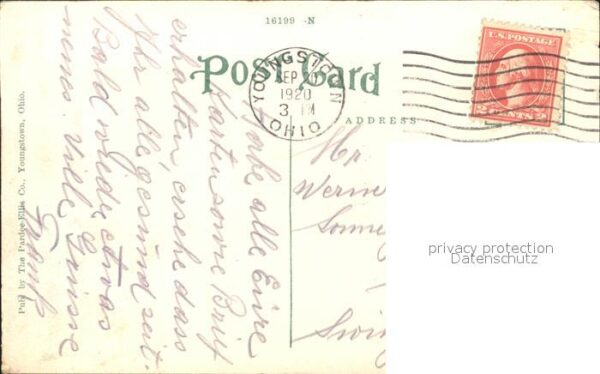 16199 -N
Post Card
YOUNGSTOWN
SEP
1920
3 PM
OHIO
U.S. POSTAGE
2 CENTS 2
ADDRESS
Publ by The Pardee-Ellis Co., Youngstown, Ohio.
Habe alle Eure
Karten sowie Brief
erhalten, ersehe dass
Ihr alle gesund seit.
Bald wieder etwas
neues. Viele Grüsse
Frank
Mr.
Werne
Sonne
Swi
privacy protection
Datenschutz